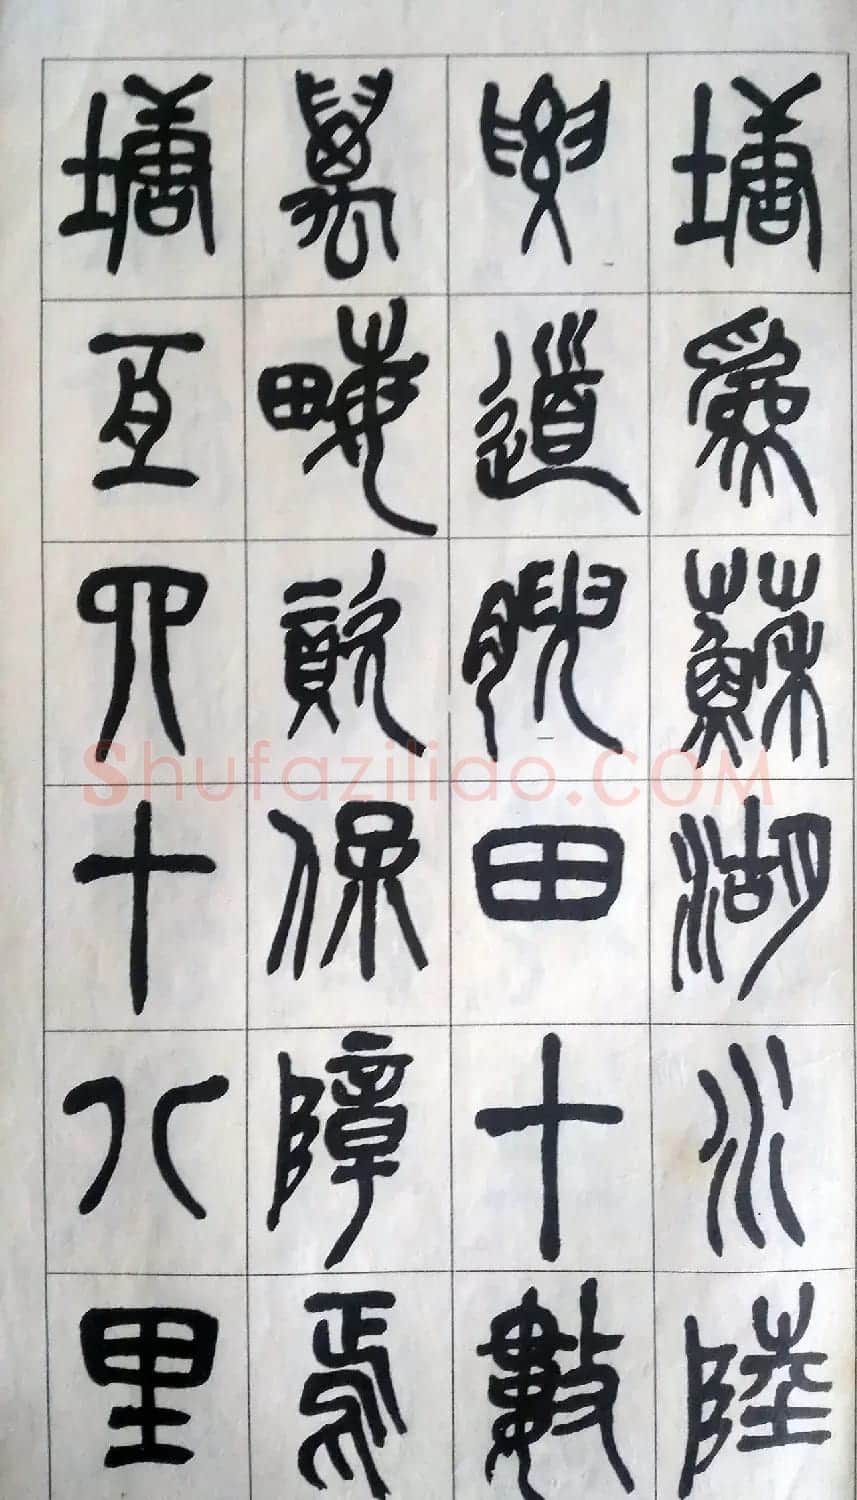 塘爲蘇湖水陸
要道腴田十數
萬畮資保障焉
塘亙四十八里
Shufazilido.COM